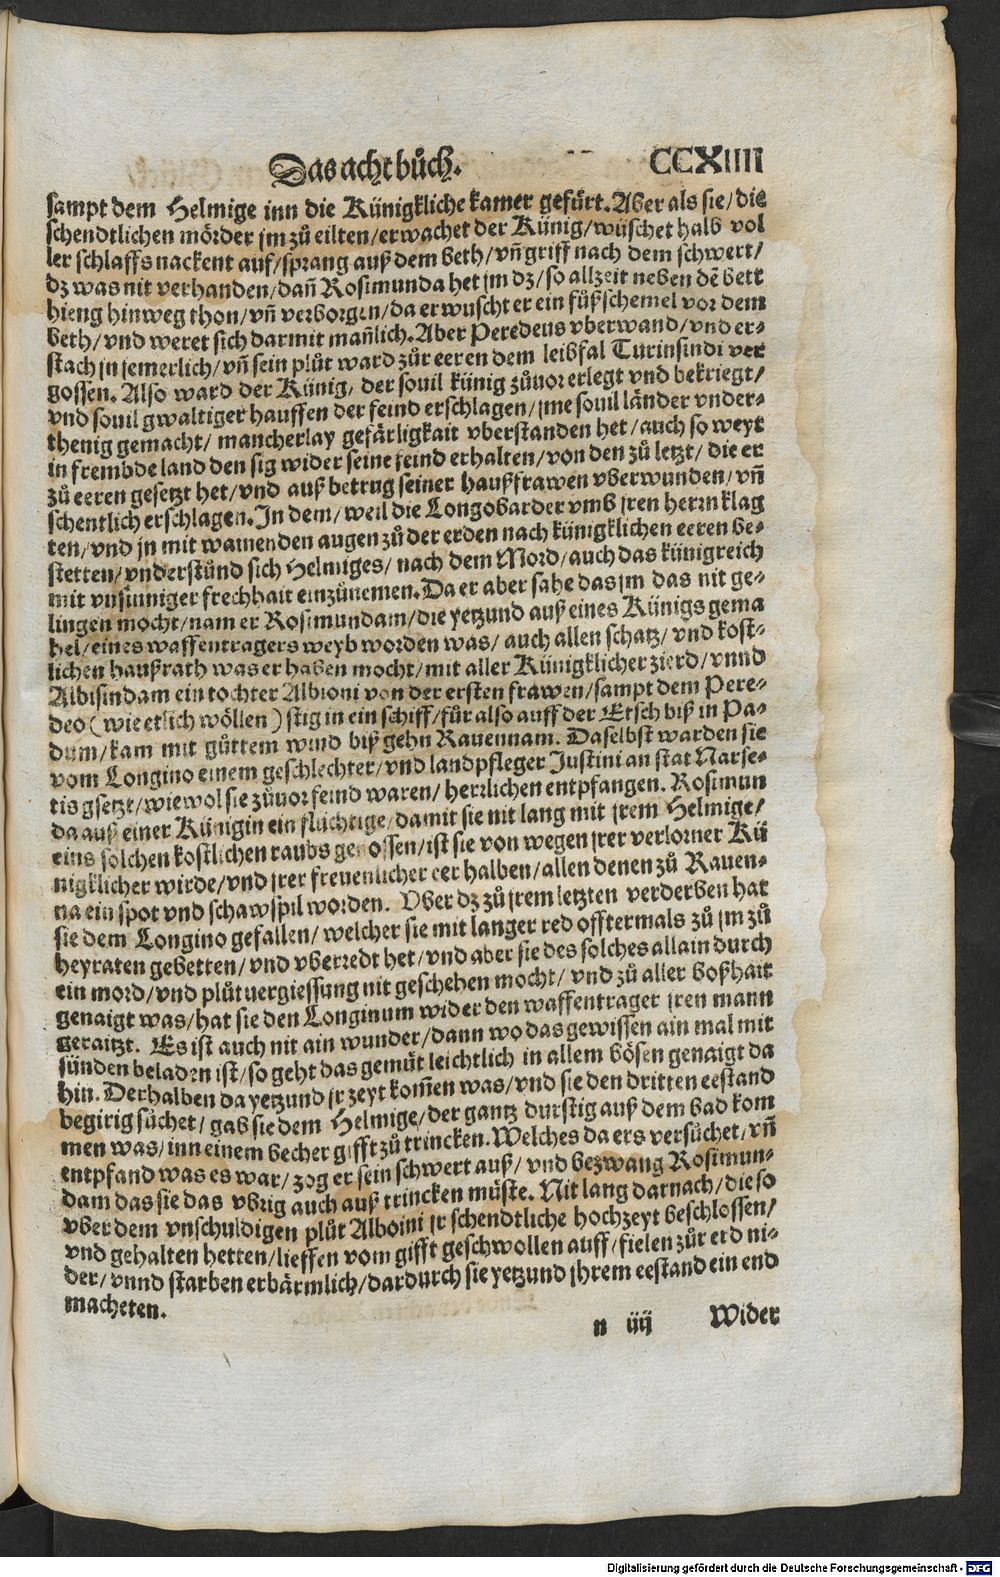 Das acht bůch. CCXIIII
sampt dem Helmige inn die Künigkliche kamer gefürt. Aber als sie/ die
schendtlichen mörder jm zů eilten/ erwachet der Künig/ wüschet halb vol
ler schlaffs nackent auf/ sprang auß dem beth/ vñ griff nach dem schwert/
dz was nit verhanden/ dañ Rosimunda het jm dz/ so allzeit neben dẽ bett
hieng hinweg thon/ vñ verborgen/ da erwuscht er ein fůßschemel vor dem
beth/ vnd weret sich darmit mañlich. Aber Peredeus vberwand/ vnd er-
stach jn jemerlich/ vñ sein plůt ward zůr eeren dem leibfal Turinsindi ver
gossen. Also ward der Künig/ der souil künig zůuor erlegt vnd bekriegt/
vnd souil gwaltiger hauffen der feind erschlagen/ jme souil länder vnder-
thenig gemacht/ mancherlay gefärligkait vberstanden het/ auch so weyt
in frembde land den sig wider seine feind erhalten/ von den zů letzt/ die er
zů eeren gesetzt het/ vnd auß betrug seiner haußfrawen vberwunden/ vñ
schentlich erschlagen. In dem/ weil die Longobarder vmb jren herrn klag
ten/ vnd jn mit wainenden augen zů der erden nach künigklichen eeren be-
stetten/ vnderstůnd sich Helmiges/ nach dem Mord/ auch das künigreich
mit vnsinniger frechhait einzůnemen. Da er aber sahe das jm das nit ge-
lingen mocht/ nam er Rosimundam/ die yetzund auß eines Künigs gema
hel/ eines waffentragers weyb worden was/ auch allen schatz/ vnd kost-
lichen haußrath was er haben mocht/ mit aller Künigklicher zierd/ vnnd
Albisindam ein tochter Albioni von der ersten frawen/ sampt dem Pere-
deo (wie etlich wöllen) stig in ein schiff/ für also auff der Etsch biß in Pa-
dum/ kam mit gůttem wind biß gehn Rauennam. Daselbst warden sie
vom Longino einem geschlechter/ vnd landpfleger Justini an stat Narse-
tis gsetzt/ wiewol sie zůuor feind waren/ herrlichen entpfangen. Rosimun
da auß einer Künigin ein flüchtige/ damit sie nit lang mit jrem Helmige/
eins solchen kostlichen raubs genossen/ ist sie von wegen jrer verlorner Kü
nigklicher wirde/ vnd jrer freuenlicher eer halben/ allen denen zů Rauen-
na ein spot vnd schawspil worden. Vber dz zů jrem letzten verderben hat
sie dem Longino gefallen/ welcher sie mit langer red offtermals zů jm zů
heyraten gebetten/ vnd vberredt het/ vnd aber sie des solches allain durch
ein mord/ vnd plůtuergiessung nit geschehen mocht/ vnd zů aller boßhait
genaigt was/ hat sie den Longinum wider den waffentrager jren mann
geraitzt. Es ist auch nit ain wunder/ dann wo das gewissen ain mal mit
sünden beladen ist/ so geht das gemůt leichtlich in allem bösen genaigt da
hin. Derhalben da yetzund jr zeyt kom̃en was/ vnd sie den dritten eestand
begirig sůchet/ gab sie dem Helmige/ der gantz durstig auß dem bad kom
men was/ inn einem becher gifft zů trincken. Welches da ers versůchet/ vñ
entpfand was es war/ zog er sein schwert auß/ vnd bezwang Rosimun-
dam das sie das vbrig auch auß trincken müste. Nit lang darnach/ die so
vber dem vnschuldigen plůt Alboini jr schendtliche hochzeyt beschlossen/
vnd gehalten hetten/ lieffen vom gifft geschwollen auff/ fielen zůr erd ni-
der/ vnnd starben erbärmlich/ dardurch sie yetzund jhrem eestand ein end
macheten.
n iiij Wider
Digitalisierung gefördert durch die Deutsche Forschungsgemeinschaft - DFG